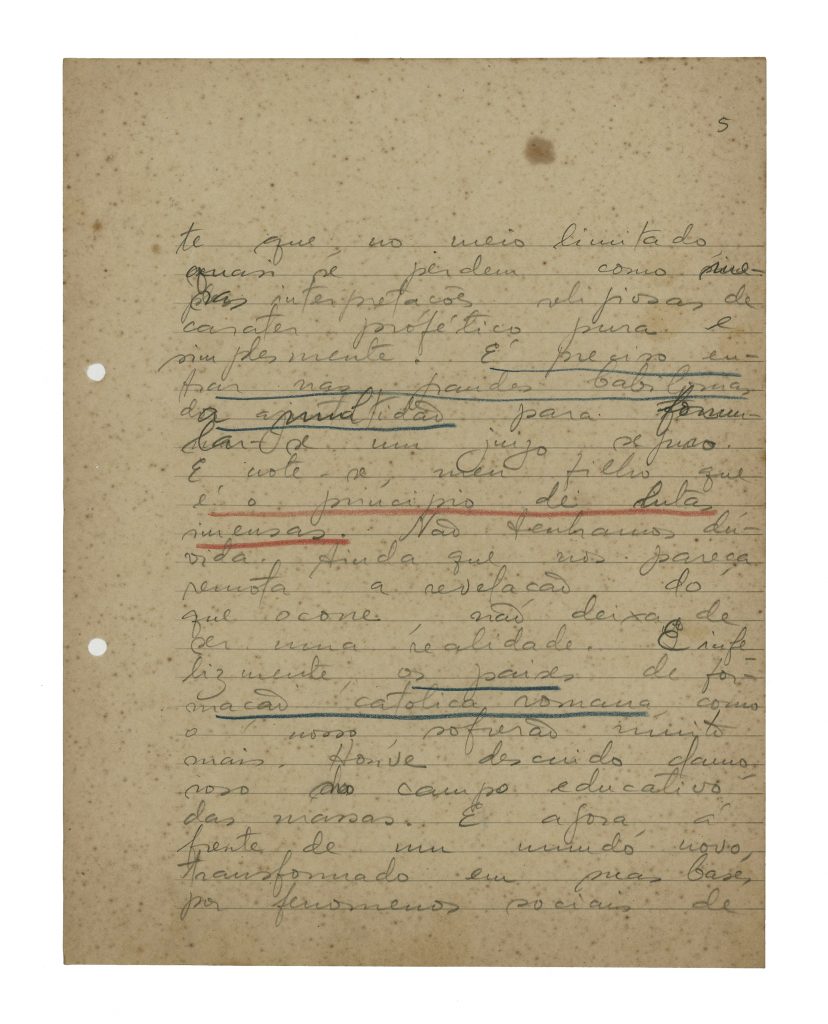 5
te que, no meio limitado,
quasi se perdem como me-
ras interpretações religiosas de
carater profético pura e
simplesmente. É preciso en-
trar nas grandes babilonias
da multidão para formu-
lar-se um juizo seguro.
E note-se, meu filho que
é o principio de lutas
imensas. Não tenhamos dú-
vida. Ainda que nos pareça
remota a revelação do
que ocorre, não deixa de
ser uma realidade. E infe
lizmente, os paises de for-
mação católica romana como
o nosso, sofrerão muito
mais. Houve descuido clamo-
roso no campo educativo
das massas. E agora á
frente de um mundo novo,
transformado em suas bases
por fenomenos sociais de